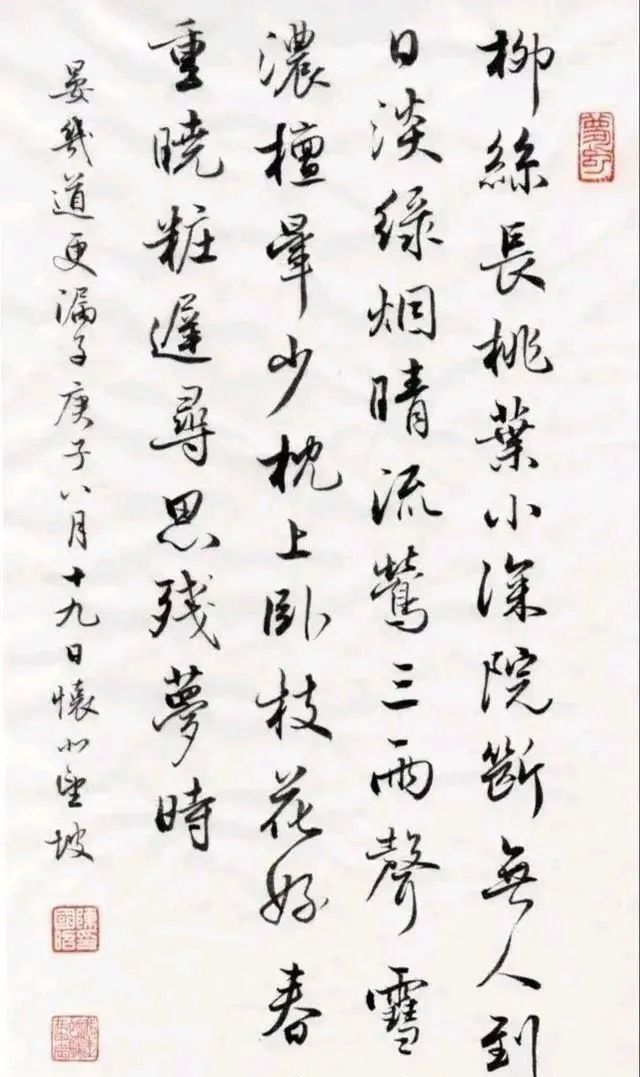 柳絲長桃葉小深院斷無人到
日淡緑烟晴流鶯三兩聲雪
濃檀暈少枕上卧枝花好春
重曉粧遲尋思殘夢時
晏幾道更漏子庚子八月十九日懷小坡